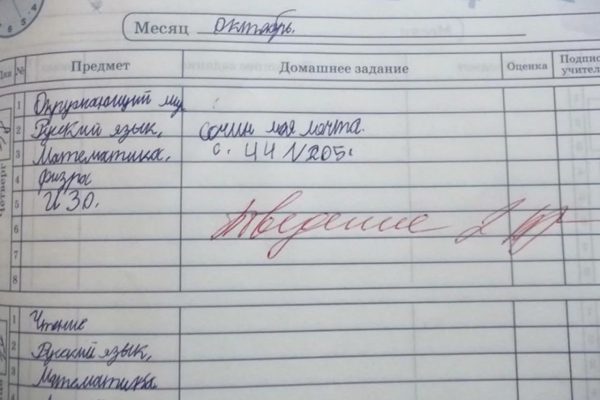 Месяц Октябрь.
№ Предмет Домашнее задание Оценка Подпис учител
1 Окружающий ми
2 Русский язык, Сочин моя мочта.
3 Математика, с. 44 №205.
4 Физра
5 ИЗО.
6 Поведение 2
7
8
Четверг
1 Чтение
2 Русский язык,
3 Математика.